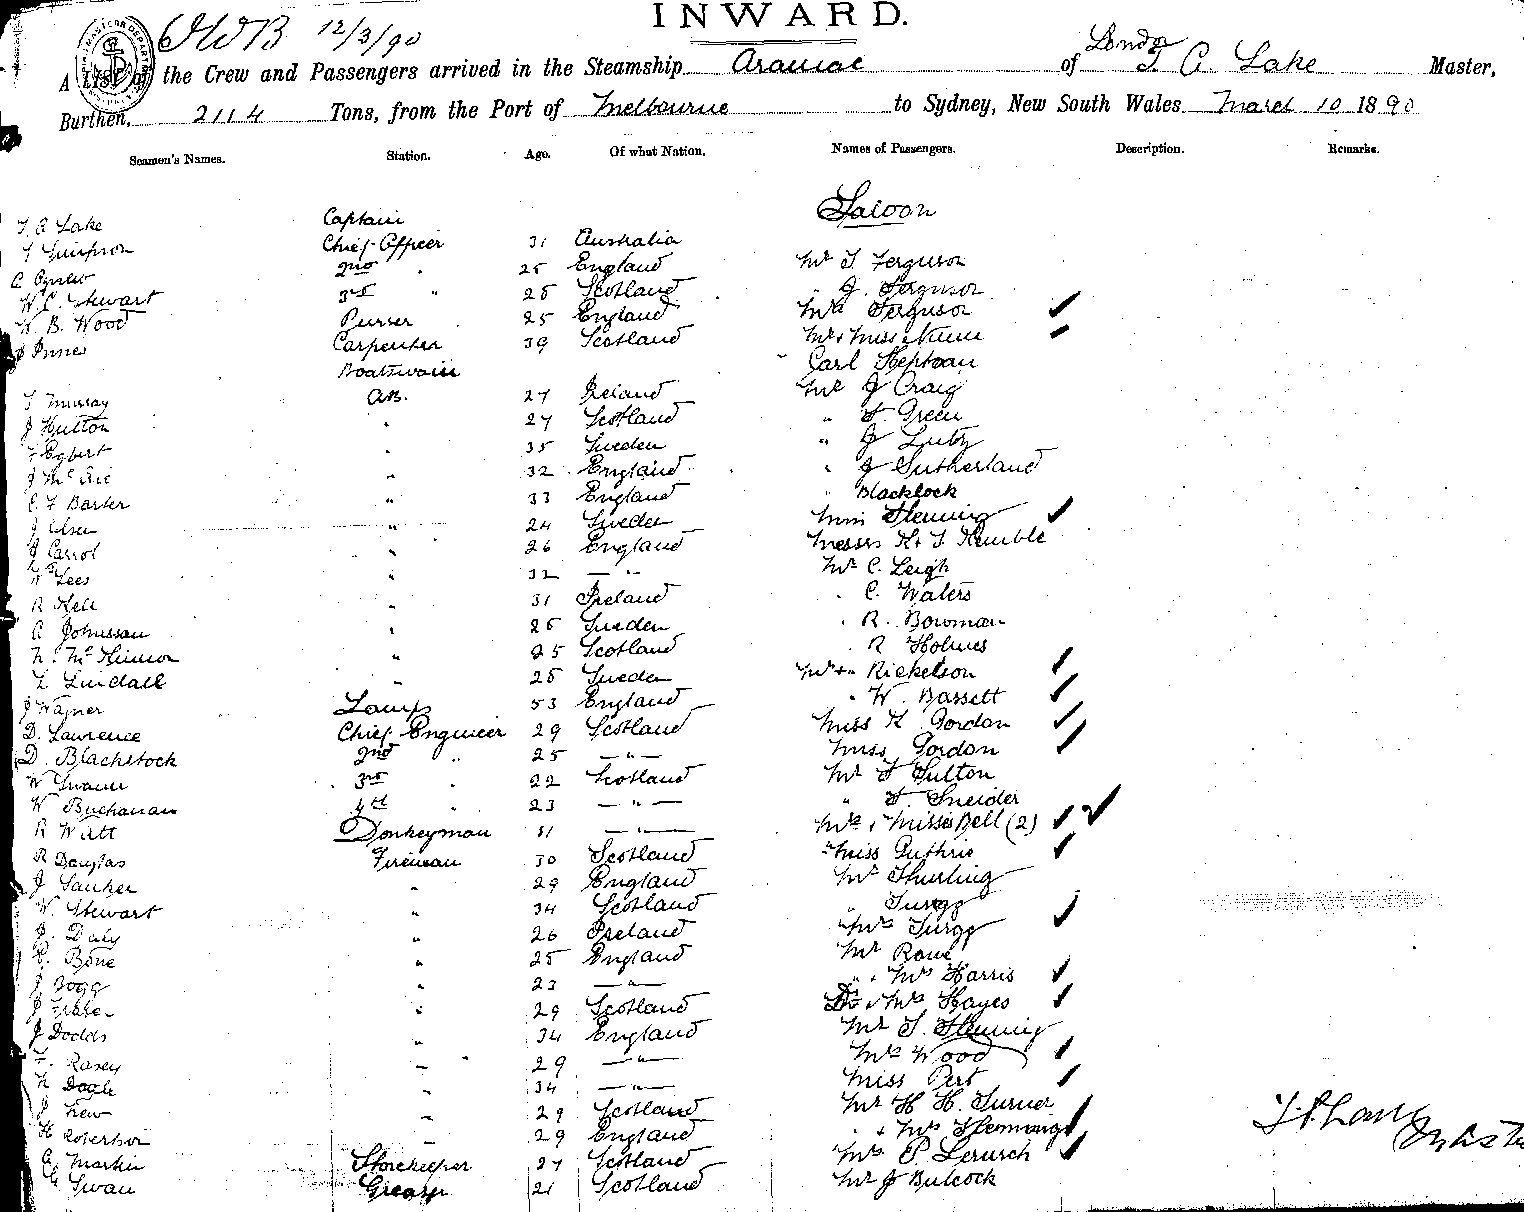 INWARD.
12/3/90
London
A List of the Crew and Passengers arrived in the Steamship Aramac of T A Lake Master,
Burthen, 2114 Tons, from the Port of Melbourne to Sydney, New South Wales March 10 1890
Seamen's Names. Station. Age. Of what Nation. Names of Passengers. Description. Remarks.
Saloon
T A Lake Captain
T Simpson Chief Officer 31 Australia
2nd " 25 England Mr T Ferguson
W C. Stewart 3rd " 25 Scotland " J. Ferguson
W B. Wood Purser 25 England Mrs Ferguson
J Innes Carpenter 39 Scotland Mr & Miss Nunn
Boatswain Carl
T Murray A.B. 27 Ireland Mr J Craig
J Hutton " 27 Scotland " F. Green
F Egbert " 35 Sweden " J
J McRie " 32 England " J Sutherland
C F Barker " 33 England " Blacklock
J Olsen " 24 Sweden Miss Fleming
J Carrol " 26 England Messrs H & T Kemble
W Lees " 32 — " — Mr C. Leigh
R Kell " 31 Ireland " C. Waters
A Johnsson " 25 Sweden " R. Bowman
N. McKinnon " 25 Scotland R Holmes
L Lindall " 25 Sweden Mr & " Rickelson
J Wagner Lamps 53 England " W. Bassett
D. Lawrence Chief Engineer 29 Scotland Miss K Gordon
D. Blackstock 2nd " 25 — " — Miss Gordon
W 3rd " 22 Scotland Mr F Sutton
W Buchanan 4th " 23 — " — " F. Sneider
R Watt Donkeyman 31 — " — Mrs & Misses Bell (2)
R Douglas Fireman 30 Scotland Miss Guthrie
J " 29 England Mr Thurling
W. Stewart " 34 Scotland "
J. Daly " 26 Ireland Mrs
C. Bone " 25 England Mr Rowe
J Hogg " 23 — " — " & Mrs Harris
J Fraser " 29 Scotland Dr & Mrs Hayes
J Dodds " 34 England Mr T. Fleming
F. Rasey " 29 — " — Mrs Wood
" 34 — " — Miss Pert
J Kew " 29 Scotland Mr H H. Turner
H Robertson " 29 England " & Mrs Hemmings
A Martin Storekeeper 27 Scotland Mrs P Lerusch
G Swan Greaser 21 Scotland Mr J Bulcock
Master